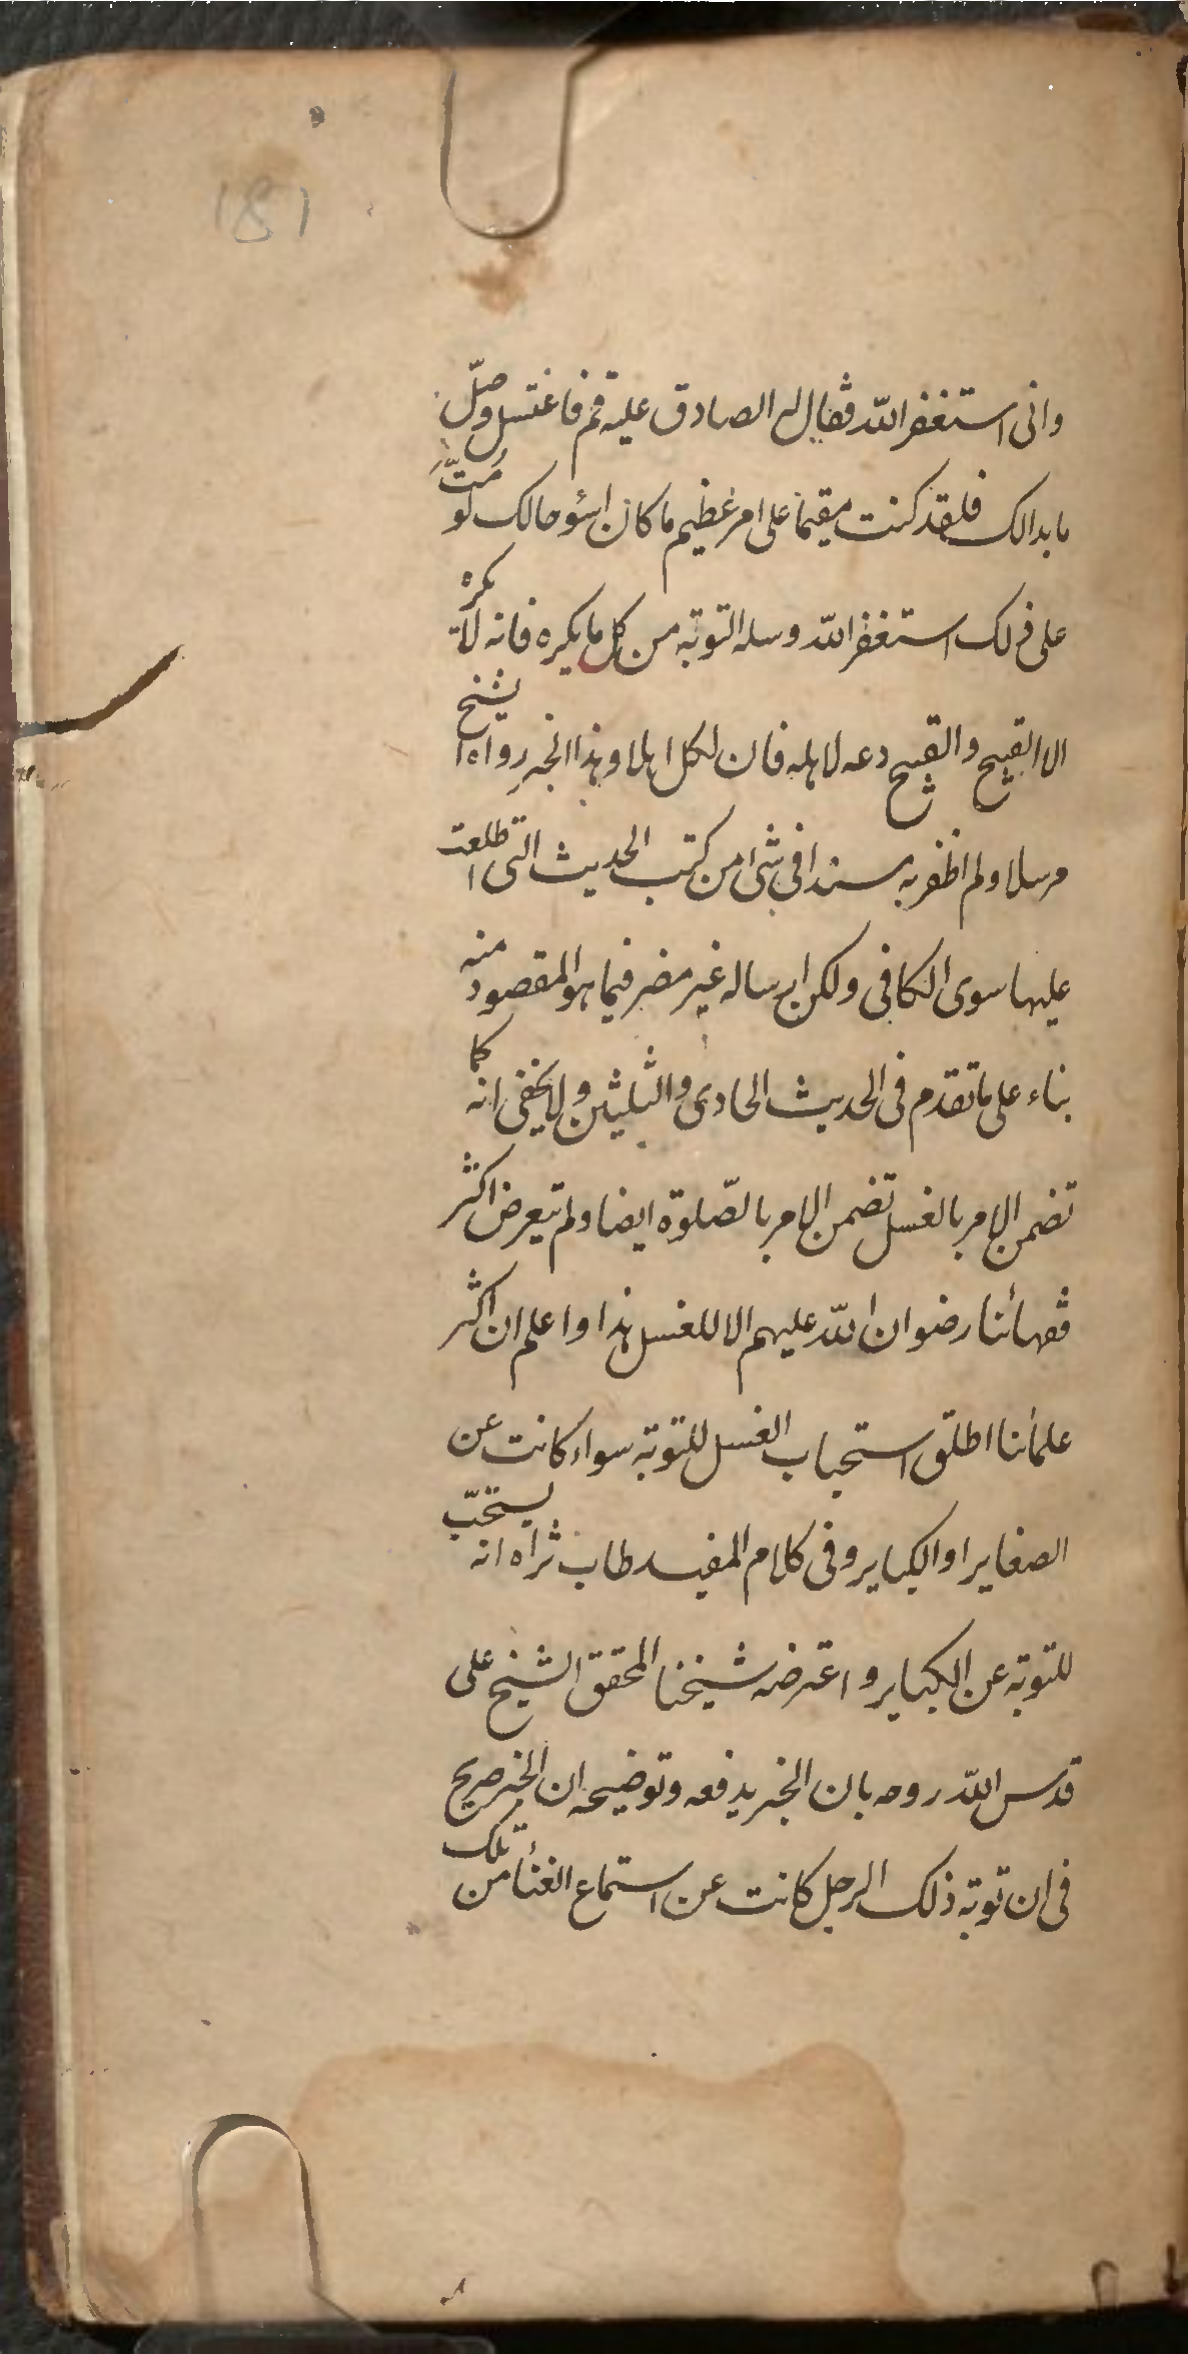 181
وانى استغفر الله فقال له الصادق عليه قم فاغتسل وصلّ
ما بدالك فلقد كنت مقيما على امر عظيم ما كان اسؤ حالك لو مُتّ
على ذلك استغفر الله وسله التوبة من كل ما يكره فانه لا يكره
الا القبيح والقبيح دعه لاهله فان لكل اهلا وهذا الخبر رواه الشيخ
مرسلا ولم اظفر به مسندا فى شئ من كتب الحديث التى اطلعت
عليها سوى الكافى ولكن ارساله غير مضر فيما هو المقصود منه
بناء على ما تقدم فى الحديث الحادى والثلثين ولا يخفى انه كما
تضمن الامر بالغسل تضمن الامر بالصّلوة ايضا ولم يتعرض اكثر
فقهائنا رضوان الله عليهم الا للغسل هذا واعلم ان اكثر
علمائنا اطلق استحباب الغسل للتوبة سواء كانت عن
الصغاير او الكباير وفى كلام المفيد طاب ثراه انه يستحبّ
للتوبة عن الكباير واعترضه شيخنا المحقق الشيخ على
قدس الله روحه بان الخبر يدفعه وتوضيحه ان الخبر صريح
فى ان توبة ذلك الرجل كانت عن استماع الغناء من تلك